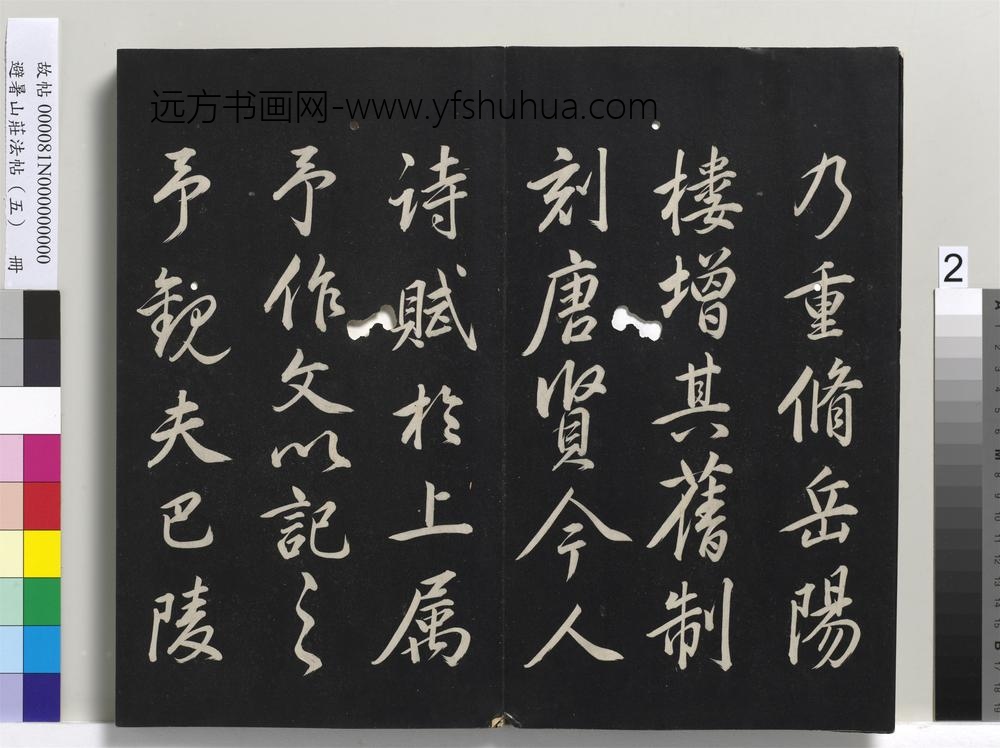 远方书画网-www.yfshuhua.com
乃重脩岳陽
樓增其舊制
刻唐賢今人
詩賦於上属
予作文以記之
予觀夫巴陵
故帖 000081N000000000
避暑山莊法帖（五） 冊
2